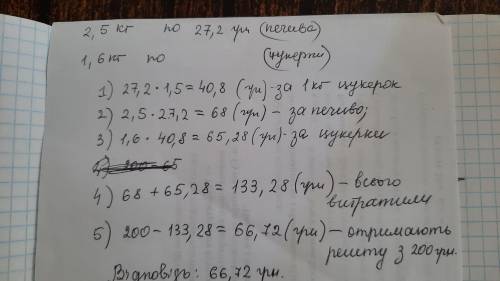 2,5 кг по 27,2 грн (печива)
1,6 кг по (цукерки)
1) 27,2 · 1,5 = 40,8 (грн) - за 1 кг цукерок
2) 2,5 · 27,2 = 68 (грн) - за печиво;
3) 1,6 · 40,8 = 65,28 (грн) - за цукерки
4) 68 + 65,28 = 133,28 (грн) - всього
витратили
5) 200 - 133,28 = 66,72 (грн) - отримають
решту з 200 грн.
Відповідь: 66,72 грн.